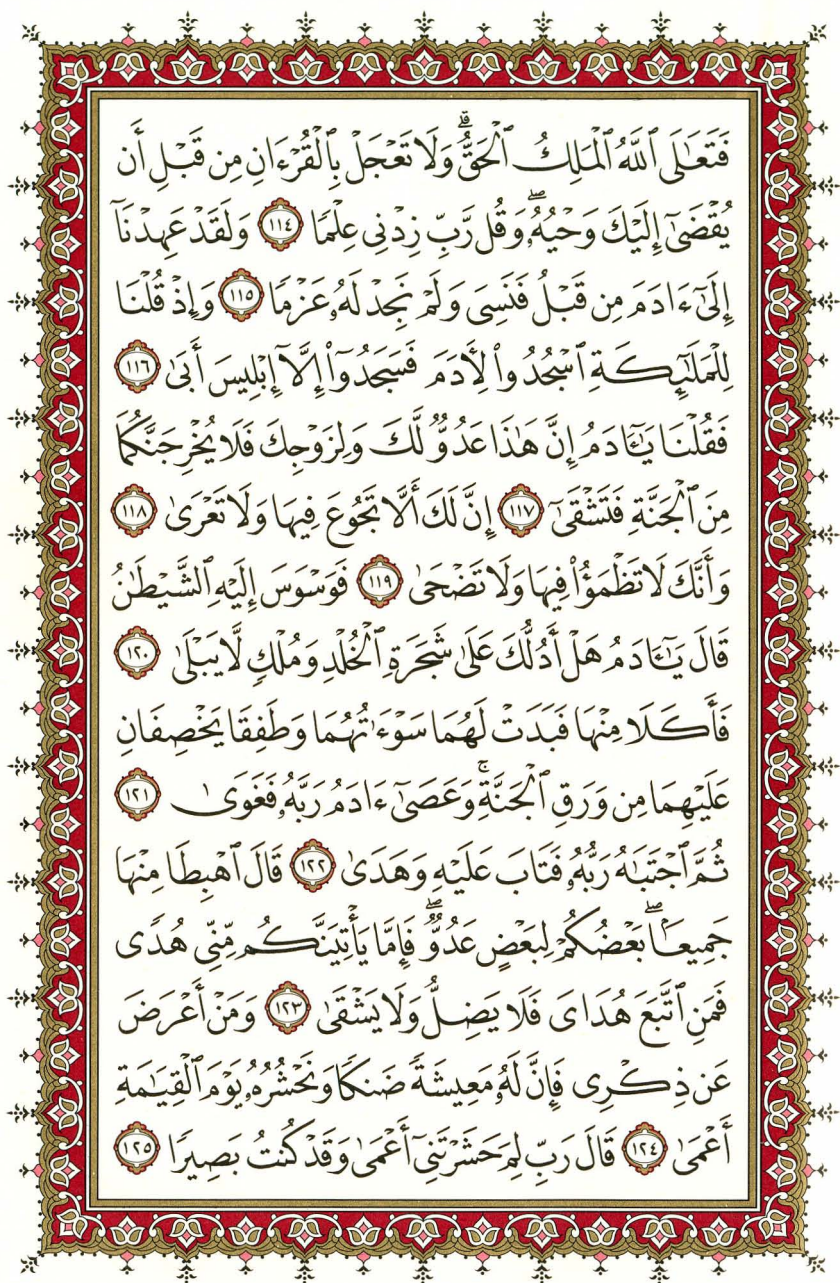 فَتَعَٰلَى ٱللَّهُ ٱلْمَلِكُ ٱلْحَقُّ ۗ وَلَا تَعْجَلْ بِٱلْقُرْءَانِ مِن قَبْلِ أَن
يُقْضَىٰٓ إِلَيْكَ وَحْيُهُۥ ۖ وَقُل رَّبِّ زِدْنِى عِلْمًا ١١٤ وَلَقَدْ عَهِدْنَآ
إِلَىٰٓ ءَادَمَ مِن قَبْلُ فَنَسِىَ وَلَمْ نَجِدْ لَهُۥ عَزْمًا ١١٥ وَإِذْ قُلْنَا
لِلْمَلَٰٓئِكَةِ ٱسْجُدُوا۟ لِءَادَمَ فَسَجَدُوٓا۟ إِلَّآ إِبْلِيسَ أَبَىٰ ١١٦
فَقُلْنَا يَٰٓـَٔادَمُ إِنَّ هَٰذَا عَدُوٌّ لَّكَ وَلِزَوْجِكَ فَلَا يُخْرِجَنَّكُمَا
مِنَ ٱلْجَنَّةِ فَتَشْقَىٰٓ ١١٧ إِنَّ لَكَ أَلَّا تَجُوعَ فِيهَا وَلَا تَعْرَىٰ ١١٨
وَأَنَّكَ لَا تَظْمَؤُا۟ فِيهَا وَلَا تَضْحَىٰ ١١٩ فَوَسْوَسَ إِلَيْهِ ٱلشَّيْطَٰنُ
قَالَ يَٰٓـَٔادَمُ هَلْ أَدُلُّكَ عَلَىٰ شَجَرَةِ ٱلْخُلْدِ وَمُلْكٍ لَّا يَبْلَىٰ ١٢٠
فَأَكَلَا مِنْهَا فَبَدَتْ لَهُمَا سَوْءَٰتُهُمَا وَطَفِقَا يَخْصِفَانِ
عَلَيْهِمَا مِن وَرَقِ ٱلْجَنَّةِ ۚ وَعَصَىٰٓ ءَادَمُ رَبَّهُۥ فَغَوَىٰ ١٢١
ثُمَّ ٱجْتَبَٰهُ رَبُّهُۥ فَتَابَ عَلَيْهِ وَهَدَىٰ ١٢٢ قَالَ ٱهْبِطَا مِنْهَا
جَمِيعًۢا ۖ بَعْضُكُمْ لِبَعْضٍ عَدُوٌّ ۖ فَإِمَّا يَأْتِيَنَّكُم مِّنِّى هُدًى
فَمَنِ ٱتَّبَعَ هُدَاىَ فَلَا يَضِلُّ وَلَا يَشْقَىٰ ١٢٣ وَمَنْ أَعْرَضَ
عَن ذِكْرِى فَإِنَّ لَهُۥ مَعِيشَةً ضَنكًا وَنَحْشُرُهُۥ يَوْمَ ٱلْقِيَٰمَةِ
أَعْمَىٰ ١٢٤ قَالَ رَبِّ لِمَ حَشَرْتَنِىٓ أَعْمَىٰ وَقَدْ كُنتُ بَصِيرًا ١٢٥